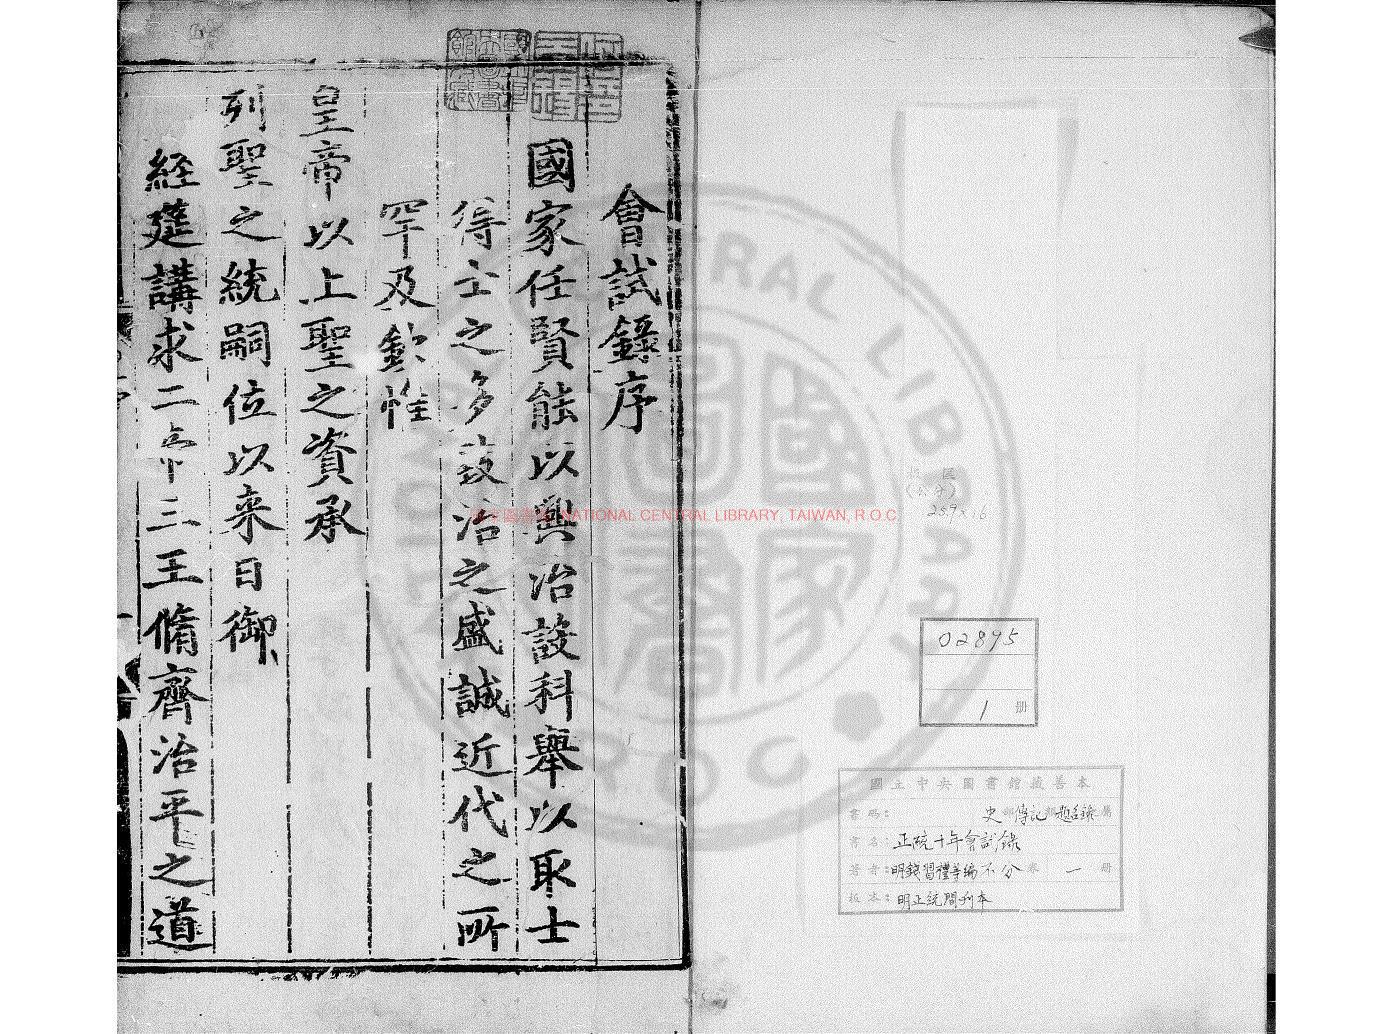 會試錄序
國家任賢能以興治設科舉以取士
得士之多致治之盛誠近代之所
罕及欽惟
皇帝以上聖之資承
列聖之統嗣位以来日御
經筵講求二帝三王脩齊治平之道
NATIONAL CENTRAL LIBRARY, TAIWAN, R.O.C
02895
1 册
國立中央圖書館藏善本
書碼: 史部傳記類題名錄屬
書名: 正統十年會試錄
著者: 明錢習禮等編 不分卷 一册
板本: 明正統間刊本